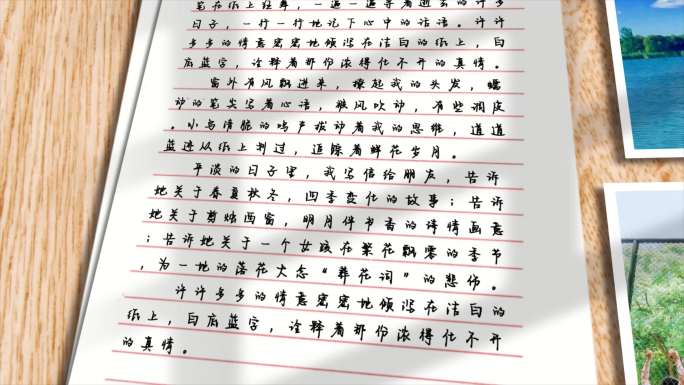 笔在纸上轻舞，一遍一遍写着逝去的许多
日子，一行一行地记下心中的话语。许许
多多的情意密密地倾泻在洁白的纸上，白
底蓝字，诠释着那份浓得化不开的真情。
窗外有风飘进来，撩起我的头发，蠕
动的笔尖写着心语，被风吹动，有些调皮
。小鸟清脆的鸣声拨动着我的思维，道道
蓝迹从纸上划过，追踪着鲜花岁月。
平淡的日子里，我写信给朋友，告诉
她关于春夏秋冬，四季变化的故事；告诉
她关于剪烛西窗，明月伴书香的诗情画意
；告诉她关于一个女孩在繁花飘零的季节
，为一地的落花大念“葬花词”的悲伤。
许许多多的情意密密地倾泻在洁白的
纸上，白底蓝字，诠释着那份浓得化不开
的真情。